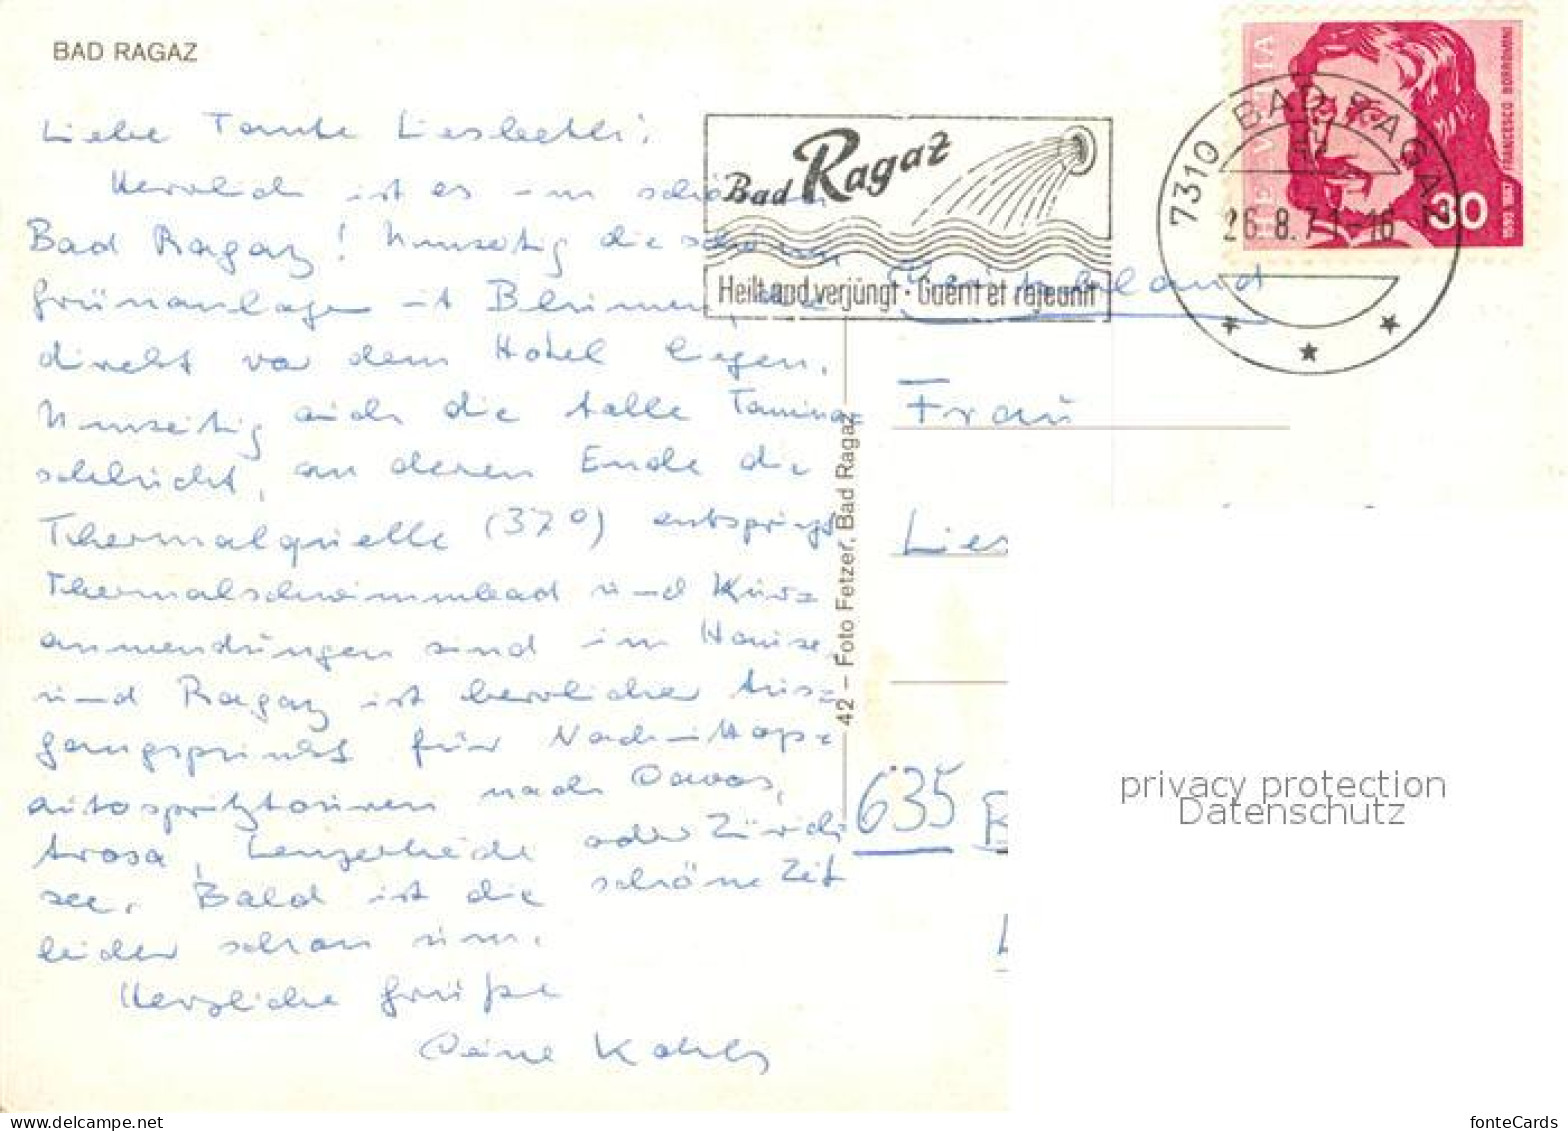 BAD RAGAZ
Liebe Tante Liesbethli!
Herrlich ist es im schönen
Bad Ragaz! Einzeitig die schönen
Grünanlagen mit Blumen, die
direkt vor dem Hotel liegen,
auch die tolle Tamina-
schlucht, an deren Ende die
Thermalquelle (37°) entspringt.
Thermalschwimmbad und Kur=
anwendungen sind im Hause,
und Ragaz ist herrlicher Aus=
gangspunkt für Nachmittags=
autospritztouren nach Davos,
Arosa, Lenzerheide oder Zürich
see. Bald ist die schöne Zeit
leider schon um.
Herzliche Grüße
Deine Kohls
Bad Ragaz
Heilt und verjüngt · Guérit et rajeunit
7310 BAD RAGAZ
26.8.71-16
HELVETIA
FRANCESCO BORROMINI
30
Deutschland
Frau
Lies
635
42 – Foto Fetzer, Bad Ragaz
privacy protection
Datenschutz
www.delcampe.net
fonteCards